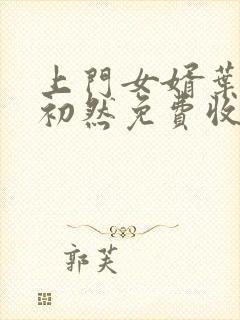 上門女婿葉
初然免費收
郭芙